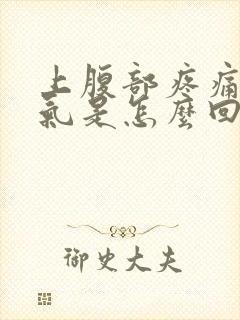 上腹部疼痛
氣是怎麼回
御史大夫